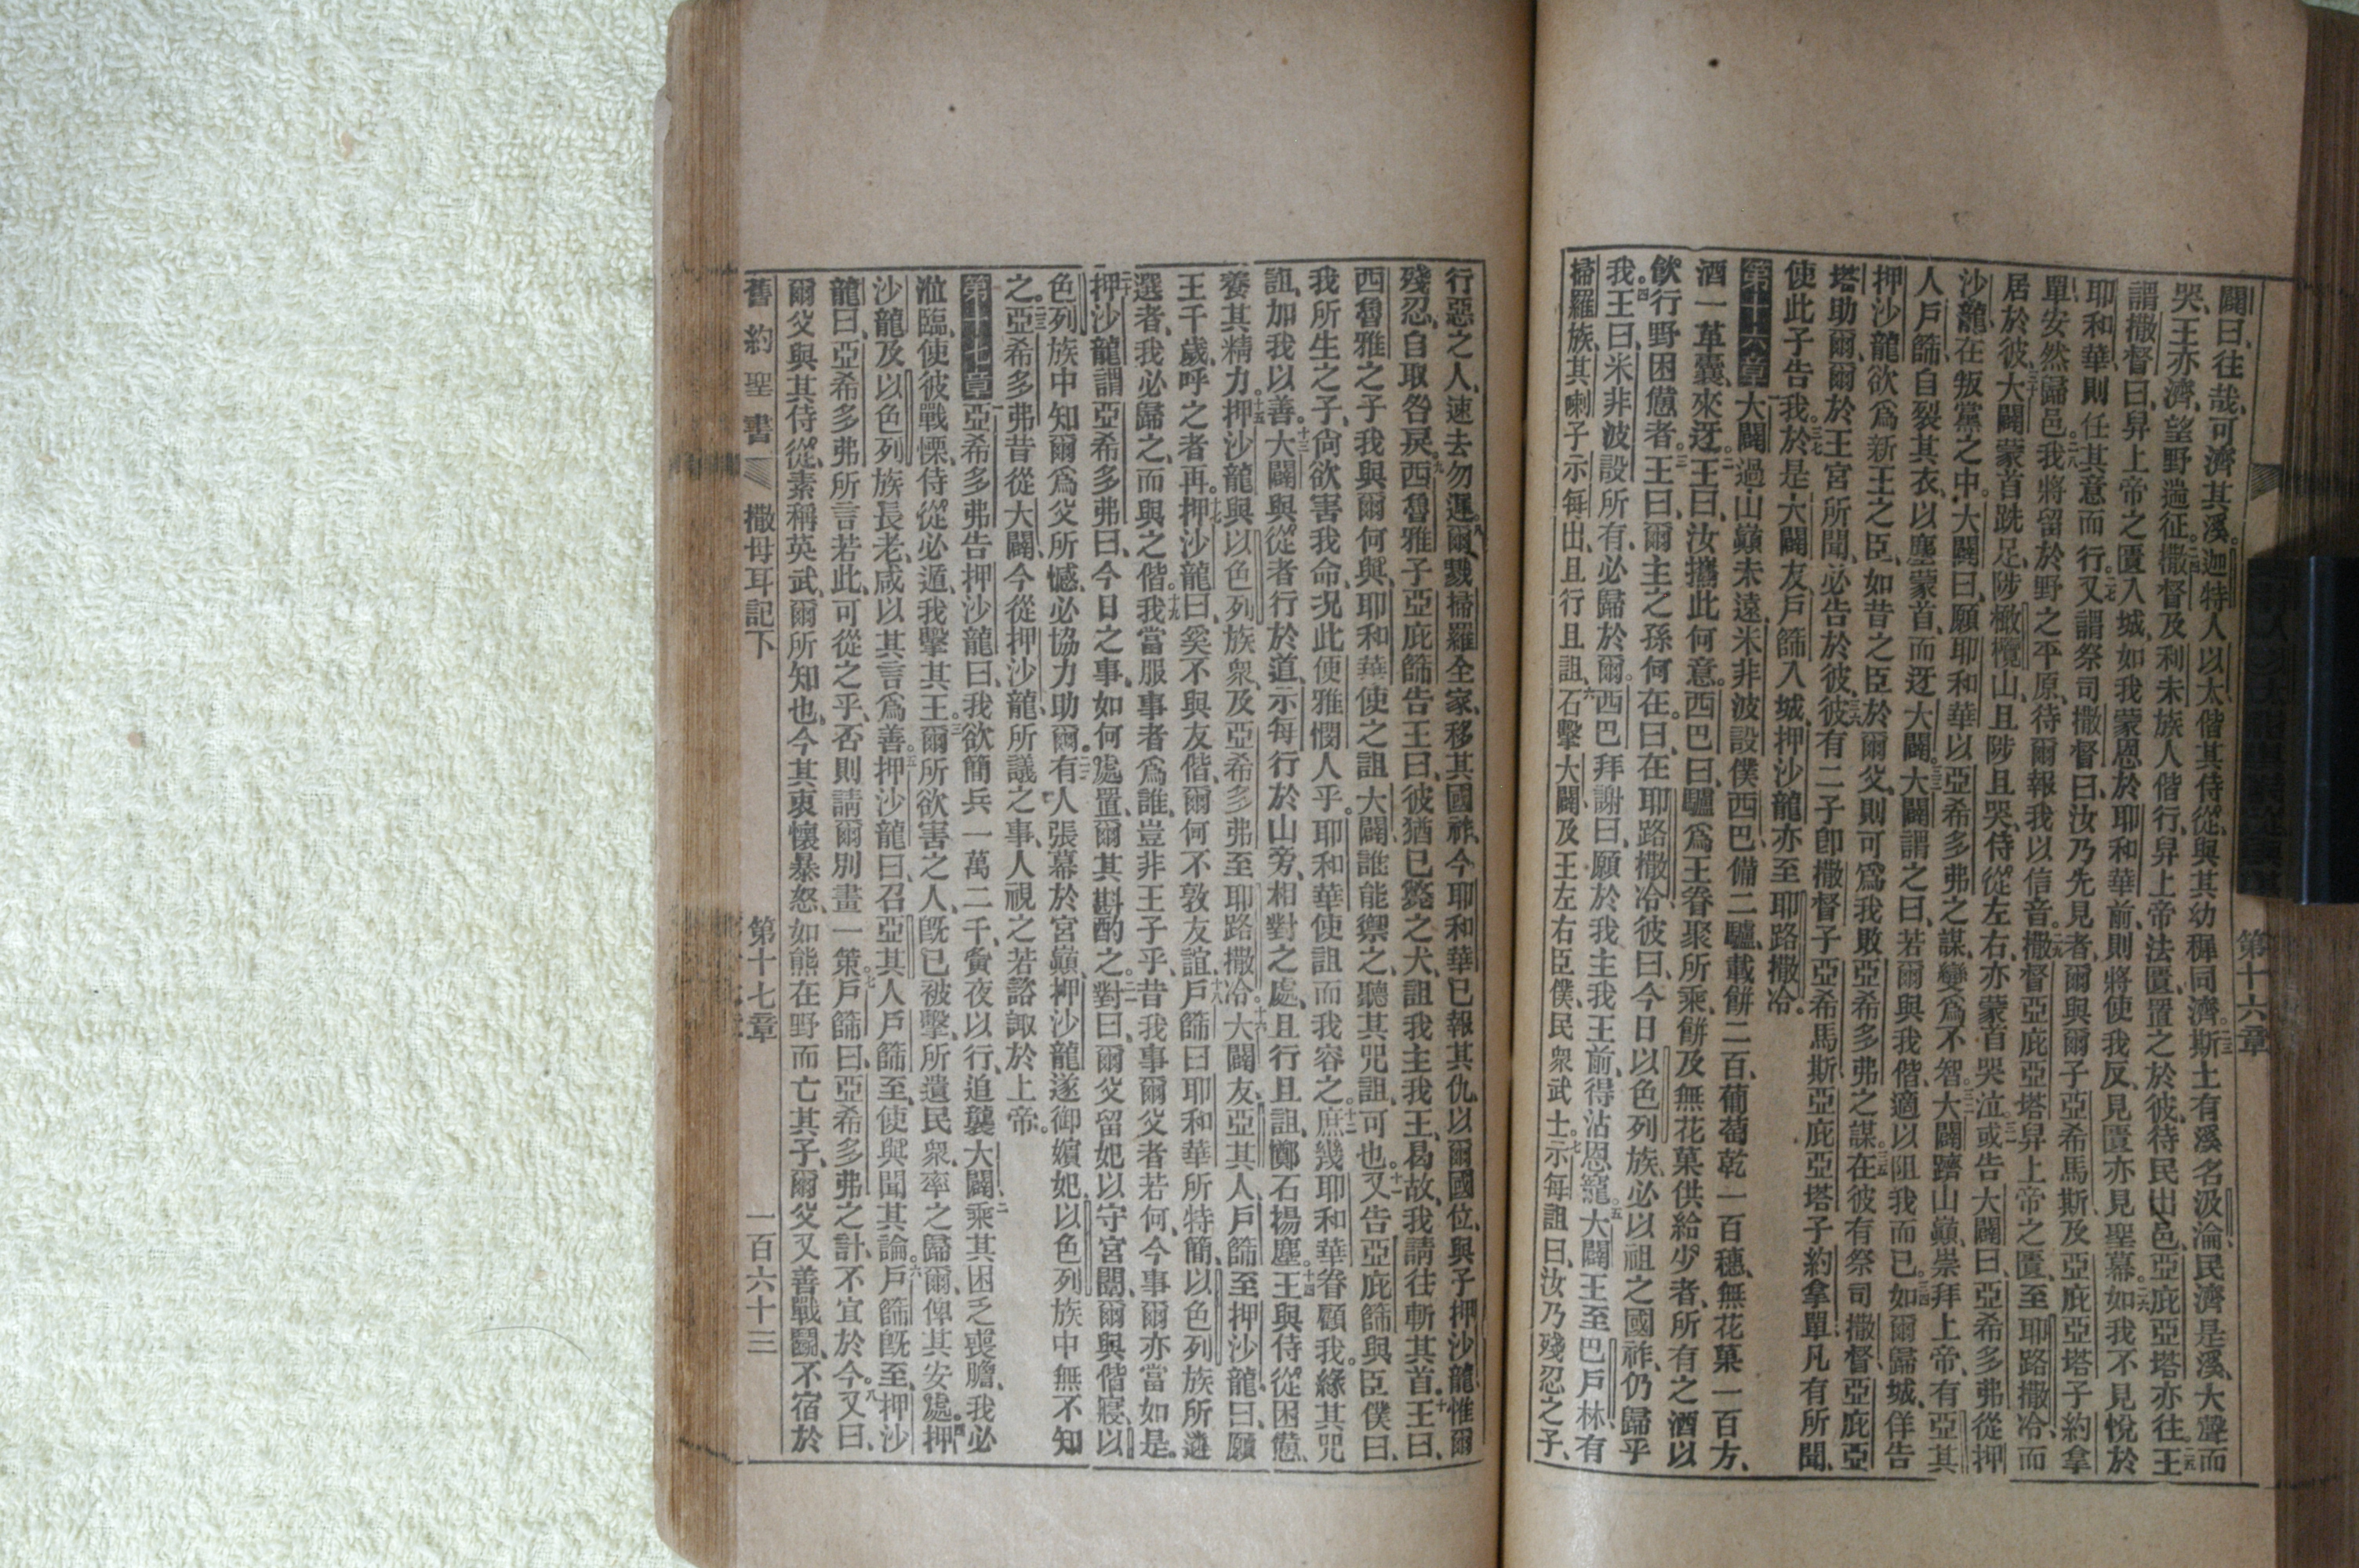 第十六章
闢曰、往哉、可濟其溪。迦特人以太、偕其侍從、與其幼穉同濟。二三斯土有溪名汲淪、民濟是溪、大聲而
哭、王亦濟、望野遄征。二四撒督及利未族人偕行、舁上帝法匱、置之於彼、待民出邑、亞庇亞塔亦往。二五王
謂撒督曰、舁上帝之匱入城、如我蒙恩於耶和華前、則將使我反、見匱亦見聖幕。二六如我不見悅於
耶和華、則任其意而行。二七又謂祭司撒督曰、汝乃先見者、爾與爾子亞希馬斯、及亞庇亞塔子約拿
單、安然歸邑。二八我將留於野之平原、待爾報我以信音。二九撒督亞庇亞塔舁上帝之匱、至耶路撒冷而
居於彼。三十大闢蒙首跣足、陟橄欖山、且陟且哭、侍從左右、亦蒙首哭泣。三一或告大闢曰、亞希多弗從押
沙龍、在叛黨之中。大闢曰、願耶和華以亞希多弗之謀、變爲不智。三二大闢躋山巔、崇拜上帝、有亞其
人戶篩自裂其衣、以塵蒙首、而迓大闢。三三大闢謂之曰、若爾與我偕、適以阻我而已。三四如爾歸城、佯告
押沙龍、欲爲新王之臣、如昔之臣於爾父、則可爲我敗亞希多弗之謀。三五在彼有祭司撒督、亞庇亞
塔助爾、爾於王宮所聞、必告於彼。三六彼有二子、卽撒督子亞希馬斯、亞庇亞塔子約拿單、凡有所聞、
使此子告我。三七於是大闢友戶篩入城、押沙龍亦至耶路撒冷。
第十六章 一大闢過山巔未遠、米非波設僕西巴、備二驢、載餅二百、葡萄乾一百穗、無花菓一百方、
酒一革囊、來迓。二王曰、汝攜此何意。西巴曰、驢爲王眷聚所乘、餅及無花菓供給少者、所有之酒以
飲行野困憊者。三王曰、爾主之孫何在。曰、在耶路撒冷、彼曰、今日以色列族、必以祖之國祚、仍歸乎
我。四王曰、米非波設所有、必歸於爾。西巴拜謝曰、願於我主我王前、得沾恩寵。五大闢王至巴戶林、有
掃羅族、其喇子示每出、且行且詛、六石擊大闢及王左右臣僕、民衆武士。七示每詛曰、汝乃殘忍之子、
行惡之人、速去勿遲。八爾戮掃羅全家、移其國祚、今耶和華已報其仇、以爾國位、與子押沙龍、惟爾
殘忍、自取咎戾。九西魯雅子亞庇篩告王曰、彼猶已斃之犬、詛我主我王、曷故、我請往斬其首。十王曰、
西魯雅之子、我與爾何與、耶和華使之詛大闢、誰能禦之、聽其咒詛、可也。十一又告亞庇篩與臣僕曰、
我所生之子、尙欲害我命、況此便雅憫人乎。耶和華使詛而我容之。十二庶幾耶和華眷顧我。緣其咒
詛、加我以善。十三大闢與從者行於道、示每行於山旁、相對之處、且行且詛、擲石揚塵。十四王與侍從困憊、
養其精力。十五押沙龍與以色列族衆、及亞希多弗至耶路撒冷。十六大闢友、亞其人、戶篩至押沙龍曰、願
王千歲、呼之者再。十七押沙龍曰、奚不與友偕、爾何不敦友誼、十八戶篩曰、耶和華所特簡、以色列族所遴
選者、我必歸之、而與之偕。十九我當服事者爲誰、豈非王子乎、昔我事爾父者若何、今事爾亦當如是。
二十押沙龍謂亞希多弗曰、今日之事、如何處置、爾其斟酌之。二一對曰、爾父留妃以守宮闈、爾與偕寢、以
色列族中知爾爲父所憾、必協力助爾。二二有人張幕於宮巔、押沙龍遂御嬪妃、以色列族中無不知
之。二三亞希多弗昔從大闢、今從押沙龍、所議之事、人視之若諮諏於上帝。
第十七章 一亞希多弗告押沙龍曰、我欲簡兵一萬二千、夤夜以行、追襲大闢、二乘其困乏喪膽、我必
涖臨、使彼戰慄、侍從必遁、我擊其王。三爾所欲害之人、旣已被擊、所遺民衆、率之歸爾、俾其安處。四押
沙龍及以色列族長老、咸以其言爲善。五押沙龍曰、召亞其人戶篩至、使與聞其論。六戶篩旣至、押沙
龍曰、亞希多弗所言若此、可從之乎、否則請爾別畫一策。七戶篩曰、亞希多弗之計、不宜於今。八又曰、
爾父與其侍從、素稱英武、爾所知也、今其衷懷暴怒、如熊在野而亡其子、爾父又善戰鬭、不宿於
舊約聖書 撒母耳記下 第十七章 一百六十三